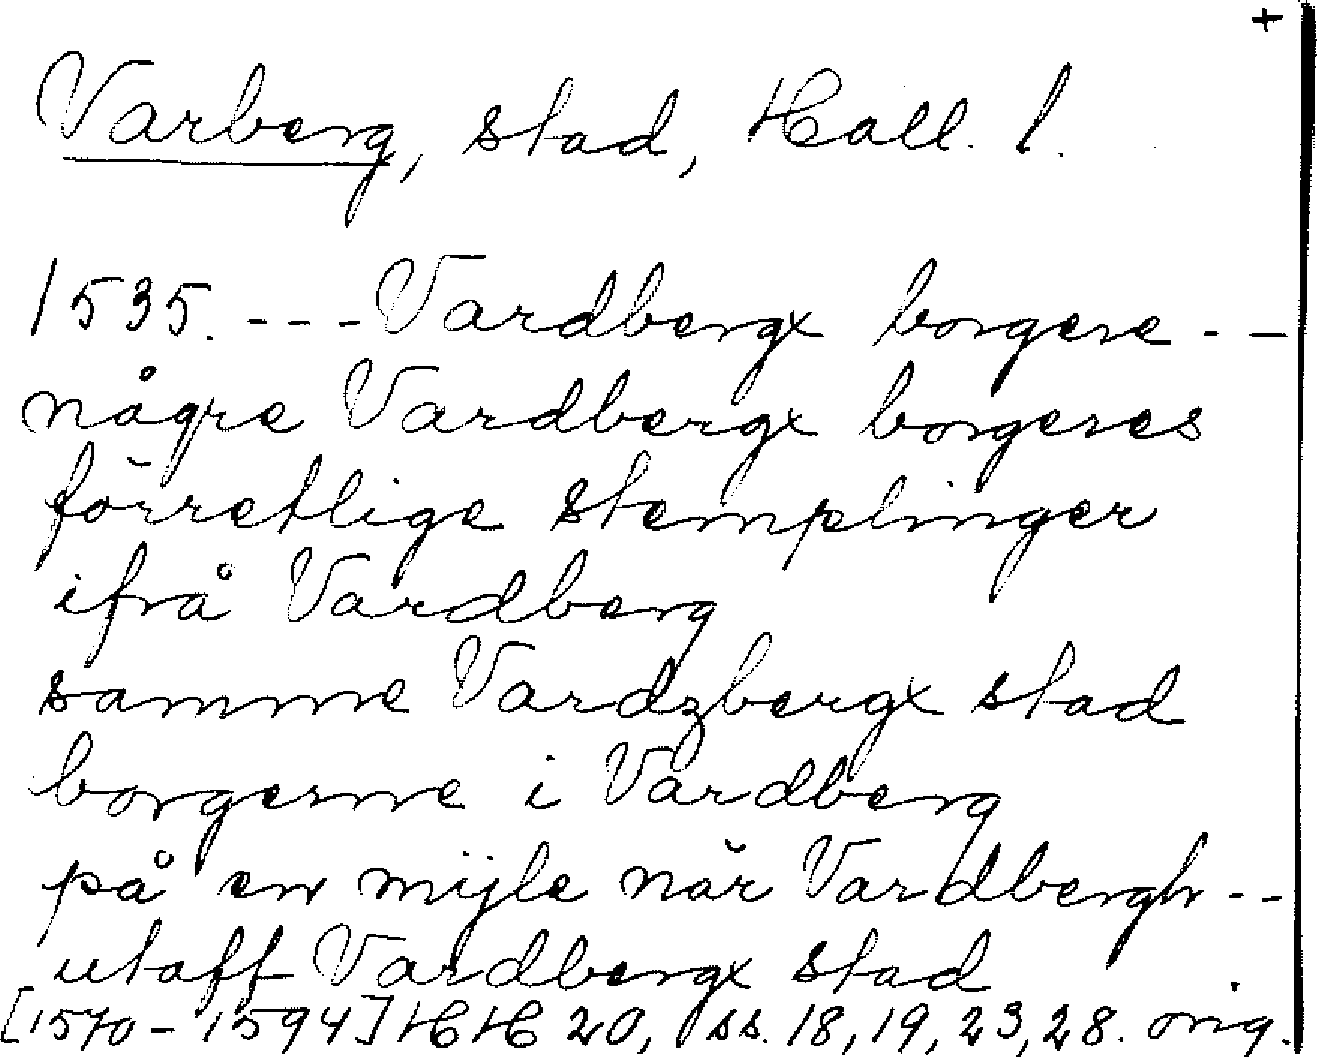 +
Varberg, stad, Hall. l.
1535. --- Vardbergx borgere --
någre Vardbergx borgeres
förretlige stemplinger
ifrå Vardberg
samme Vardzbergx stad
borgerne i Vardberg
på en mijle när Vardbergh --
utaff Vardbergx stad
[1570-1594] HH 20, ss. 18, 19, 23, 28. orig.